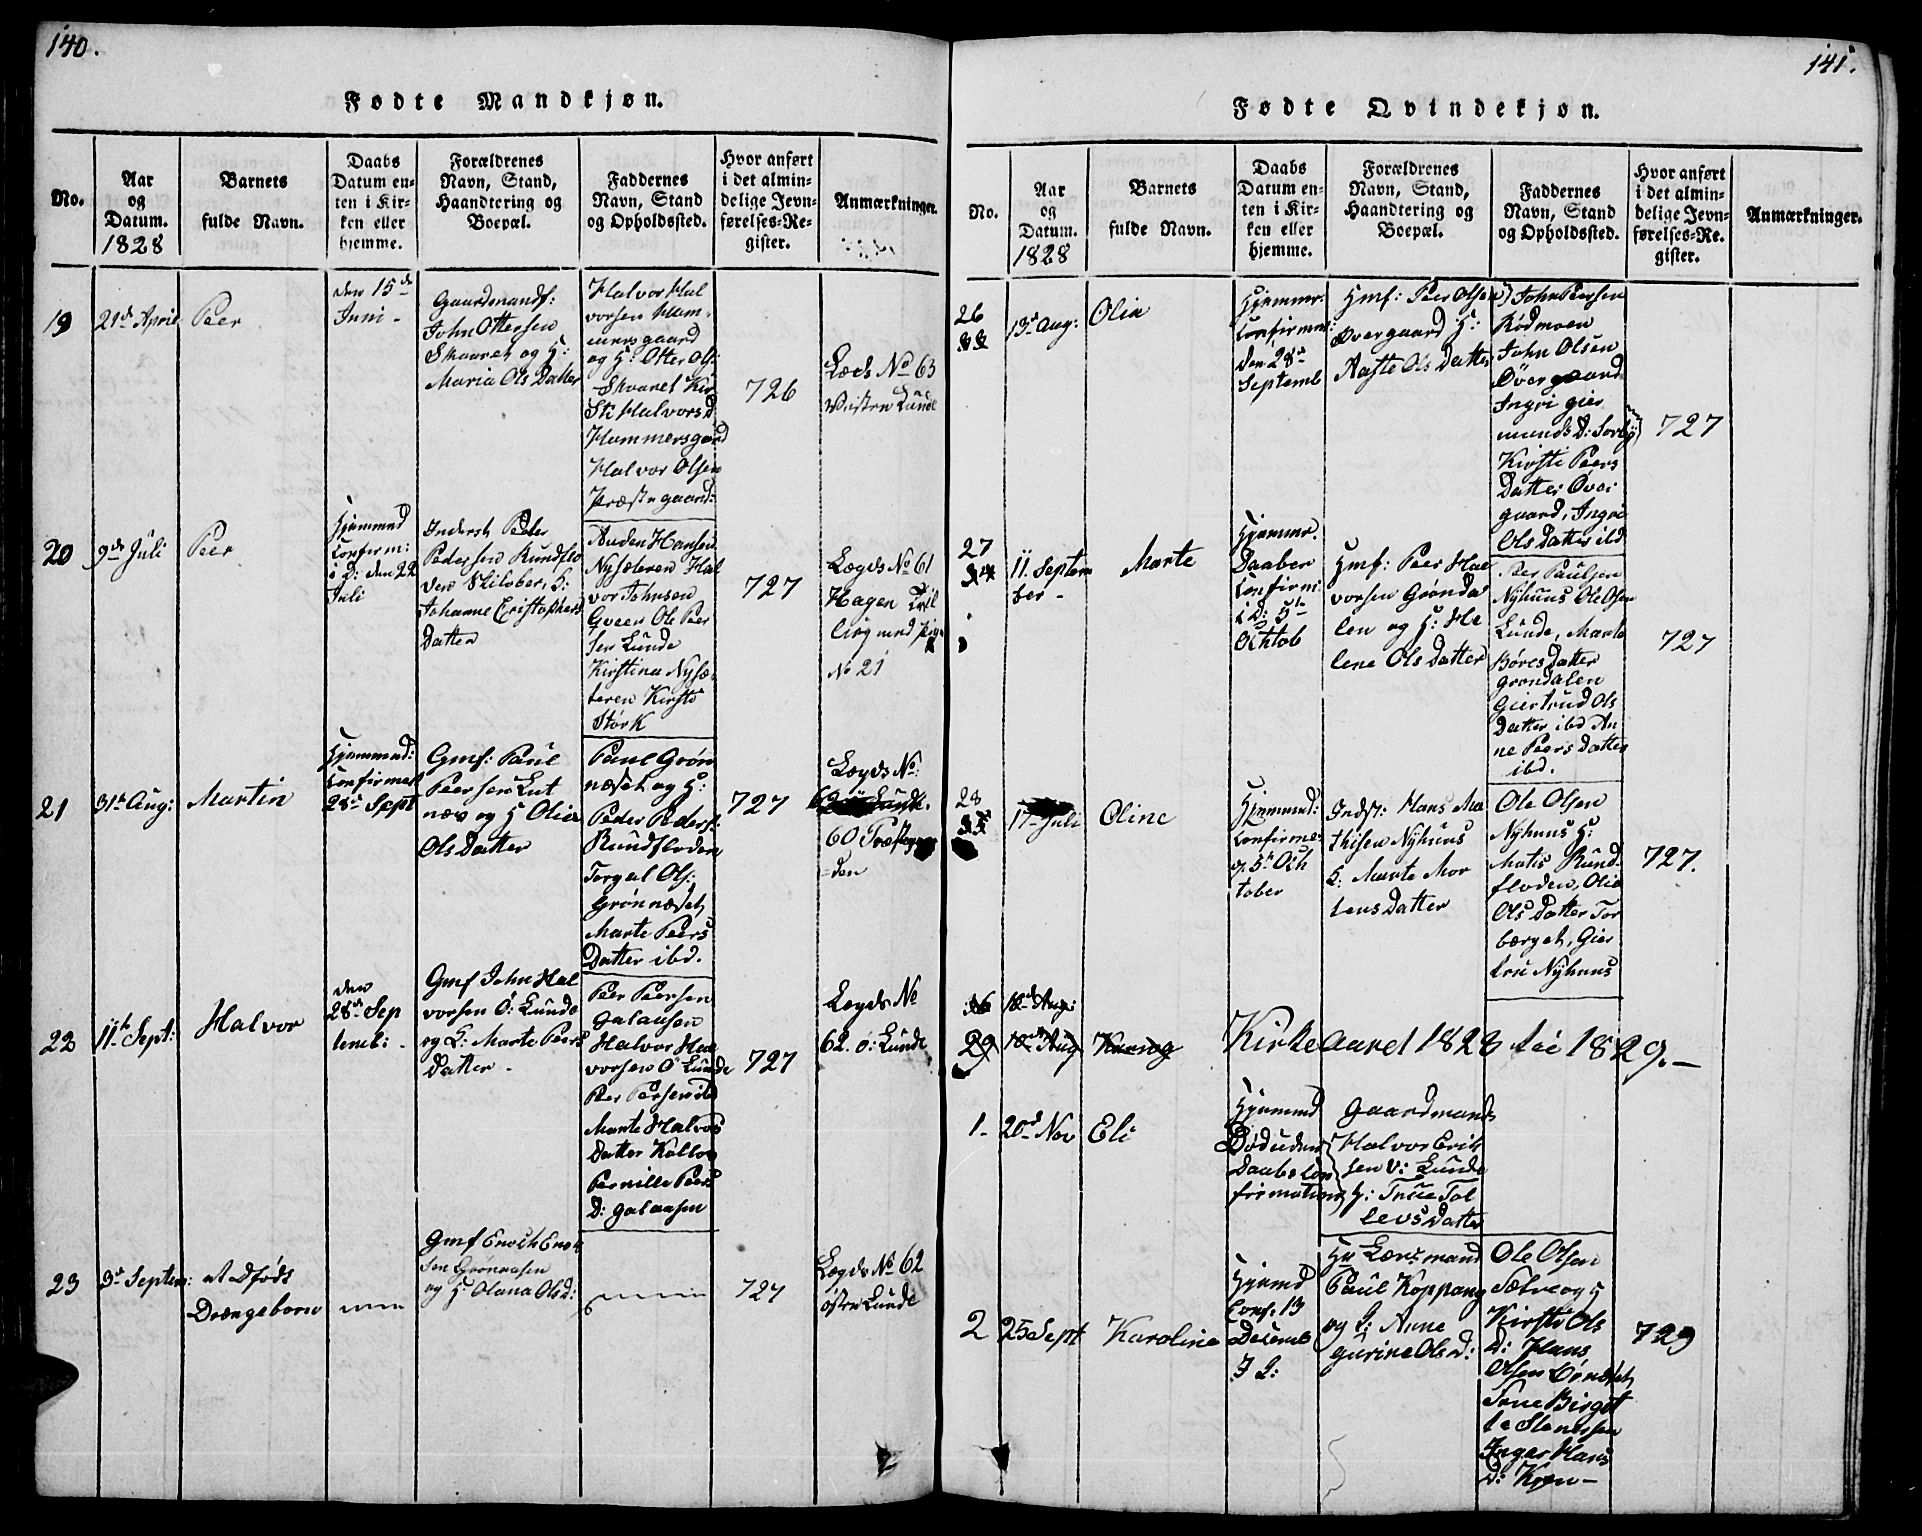 140.
Fødte Mandkjøn.
No.
Aar
og
Datum.
1828
Barnets
fulde Navn.
Daabs
Datum en-
ten i Kir-
ken eller
hjemme.
Forældrenes
Navn, Stand,
Haandtering og
Boepæl.
Faddernes
Navn, Stand
og Opholdssted.
Hvor anført
i det almin-
delige Jevn-
førelses-Re-
gister.
Anmærkninger.
19
21de April
Peer
den 15de
Juni -
Gaardmandf:
John Ottersen
Skaaret og H:
Maria Ols Datter
Halvor Hal
vorsen Ham-
mersgaard
og H: Otter Ols:
Skaaret Kir
sti Halvors D
Hammersgard
Halvor Olsen
Præstegaard:
726
No 63
Lunde
20
9de Juli
Peer
Hjemmed
Confirm:
i D: den 22
Juli
Inderst Peder
Pedersen Rundflo
den
Johanne Cristophers
Datter
Anden Hansen
Nysæteren Hal
vor Johnsen
Qveen Ole Peer
sen Lunde
Kirstina Nysæ-
teren Kirsti
Størk
727
Lægds No 61
Hagen
No 21
21
31te Aug:
Martin
Hjemmed:
Confirmert
28de Sept
Gmf: Paul
Peersen Lut
næs og H Olia
Ols Datter
Paul Grøn
næset og H:
Peder Peders:
Rundfloden
Torgal Ols:
Grønnæset
Marte Peers
Datter ibd.
727
Lægds No:
60
den
22
11te Sept:
Halvor
den
28de Sep
temb: -
Gmf John Hal
vorsen Ø: Lunde
og H: Marte Peers
Datter -
Peer Peersen
Galaasen
Halvor Hal
vorsen Ø Lunde
Peer Peersen ibd
Marte Halvors
Datter Kolbo
Pernille Peers
D: Galaasen
727
Lægds No
62. Ø: Lunde
23
3de Septem:
et Dføds
Drængebarn
Gmf Enoch Enok
sen Grønaasen
og H: Olana Ols D:
727
Lægds No 62
østre Lunde
141.
Fødte Qvindekjøn.
No.
Aar
og
Datum.
1828
Barnets
fulde Navn.
Daabs
Datum en-
ten i Kir-
ken eller
hjemme.
Forældrenes
Navn, Stand,
Haandtering og
Boepæl.
Faddernes
Navn, Stand
og Opholdssted.
Hvor anført
i det almin-
delige Jevn-
førelses-Re-
gister.
Anmærkninger.
26
13de Aug:
Olia
Hjemmed:
Confirmert:
den 28de
Septemb
Gmf: Peer Olsen
Øvergaard H:
Aaste Ols Datter
John Peersen
Rødmoen
John Olsen
Øvergaard
Ingri Gier
munds D: Sorby
Kirsti Peers
Datter Øver
gaard, Ingri
Ols Datter ibd
727
27
11. Septem
ber -
Marte
Hjemmed.
Daaben
Confirm:
i D: 5te
Octob
Gmf: Peer Hal
vorsen Grønda
len og H: He
lene Ols Datter
Peer Paulsen
Nyhuus Ole Olsen
Lunde, Marte
Børes Datter
Grøndalen
Giertrud Ols
Datter ibd An
ne Peers Datter
ibd.
727
28
17 Juli
Oline
Hjemmed:
Confirmer
5te Oct
tober
Indst: Hans Ma
thisen Nyhuus
H: Marte Mor
tens Datter
Ole Olsen
Nyhuus H:
Matis Rund-
floden, Olia
Ols Datter Tor
berget, Gier
tru Nyhuus
727.
18de Aug:
29
18de Aug
Kirkeaaret 1828 til 1829.-
1-
20de Nov
Eli
Hjemmed
Død uden
Daabs Con
firmation
Gaardmands
Halvor Erik
sen V: Lunde
H: Tol
levs Datter
2
25 Sept
Karoline
Hjemd
Conf. 13
Decemb
Hr Lænsmand
Paul Koppang
og H: Anne
Gurine Ols D:
Ole Olsen
Sætre og H
Kirsti Ols
D: Hans
Olsen
Birgit
te Stenersen
Inger Hans
D:
729